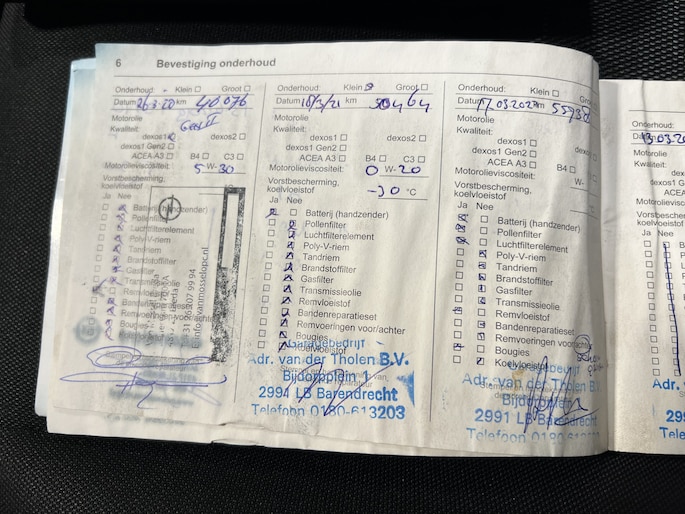 6 Bevestiging onderhoud
Onderhoud: Klein Groot
Datum 26.3.20 km 40076
Motorolie
Kwaliteit:
dexos1 dexos2
dexos1 Gen2
ACEA A3 B4 C3
Motorolieviscositeit: 5 W-30
Vorstbescherming,
koelvloeistof
Ja Nee
Batterij (handzender)
Pollenfilter
Luchtfilterelement
Poly-V-riem
Tandriem
Brandstoffilter
Gasfilter
Transmissieolie
Remvloeistof
Bandenreparatieset
Remvoeringen voor/achter
Bougies
31 2651 07 99 94
info@vanmosselopc.nl
Onderhoud: Klein Groot
Datum 18/3/21 km 50464
Motorolie
Kwaliteit:
dexos1 dexos2
dexos1 Gen2
ACEA A3 B4 C3
Motorolieviscositeit: 0 W-20
Vorstbescherming,
koelvloeistof -30 °C
Ja Nee
Batterij (handzender)
Pollenfilter
Luchtfilterelement
Poly-V-riem
Tandriem
Brandstoffilter
Gasfilter
Transmissieolie
Remvloeistof
Bandenreparatieset
Remvoeringen voor/achter
Bougies
Koelvloeistof
Garagebedrijf
Adr. van der Tholen B.V.
Bijdorpplein 1
2991 LB Barendrecht
Telefoon 0180-613203
Onderhoud: Klein Groot
Datum 17.03.202 km
Motorolie
Kwaliteit:
dexos1
dexos1 Gen2
ACEA A3 B4
Motorolieviscositeit: W-
Vorstbescherming,
koelvloeistof
Ja Nee
Batterij (handzender)
Pollenfilter
Luchtfilterelement
Poly-V-riem
Tandriem
Brandstoffilter
Gasfilter
Transmissieolie
Remvloeistof
Bandenreparatieset
Remvoeringen voor/achter
Bougies
Koelvloeistof
Garagebedrijf
Adr. van der Tholen B.V.
Bijdorpplein
2991 LB Barendrecht
Telefoon 0180-613203
Onderhoud:
13-03-20
Motorolie
Kwaliteit:
dexos1
dexos1 Gen
ACEA A
Motorolieviscos
Vorstbescherm
koelvloeistof
Ja Nee
Ba
Adr.
299
Tel